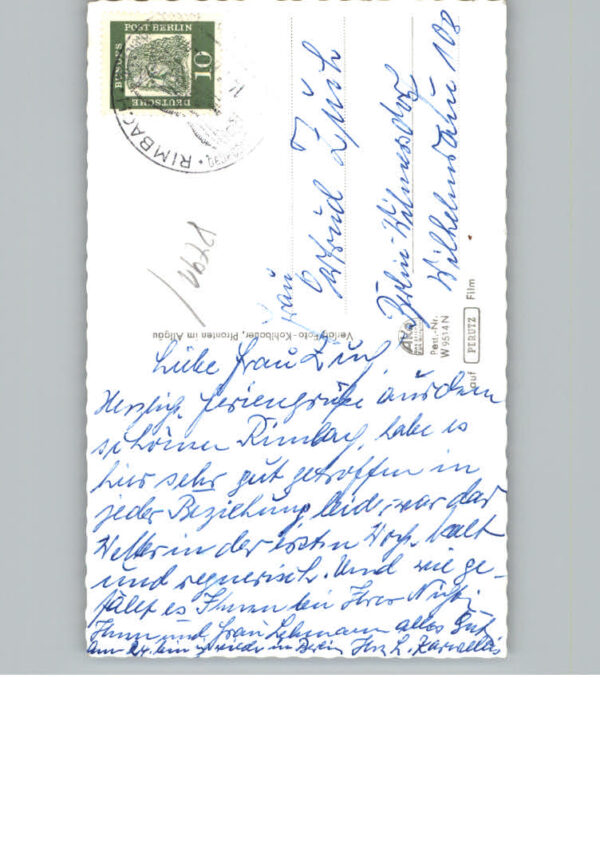 DEUTSCHE
BUNDESPOST BERLIN
10
RIMBACH
Frau
Berlin-Wilmersdorf
Wilhelmsaue 108
Verlag Foto-Kohlbauer, Pfronten im Allgäu
AKO
Best.-Nr.
W 9514 N
auf PERUTZ Film
Liebe Frau
Herzlich. Feriengrüße aus dem
schönen Rimbach, habe es
hier sehr gut getroffen in
jeder Beziehung leider war das
Wetter in der ersten Woch. kalt
und regnerisch. Und wie ge-
fällt es Ihnen bei Ihrer
Ihnen und Frau Lehmann alles Gute
am 24. bin wieder in Berlin